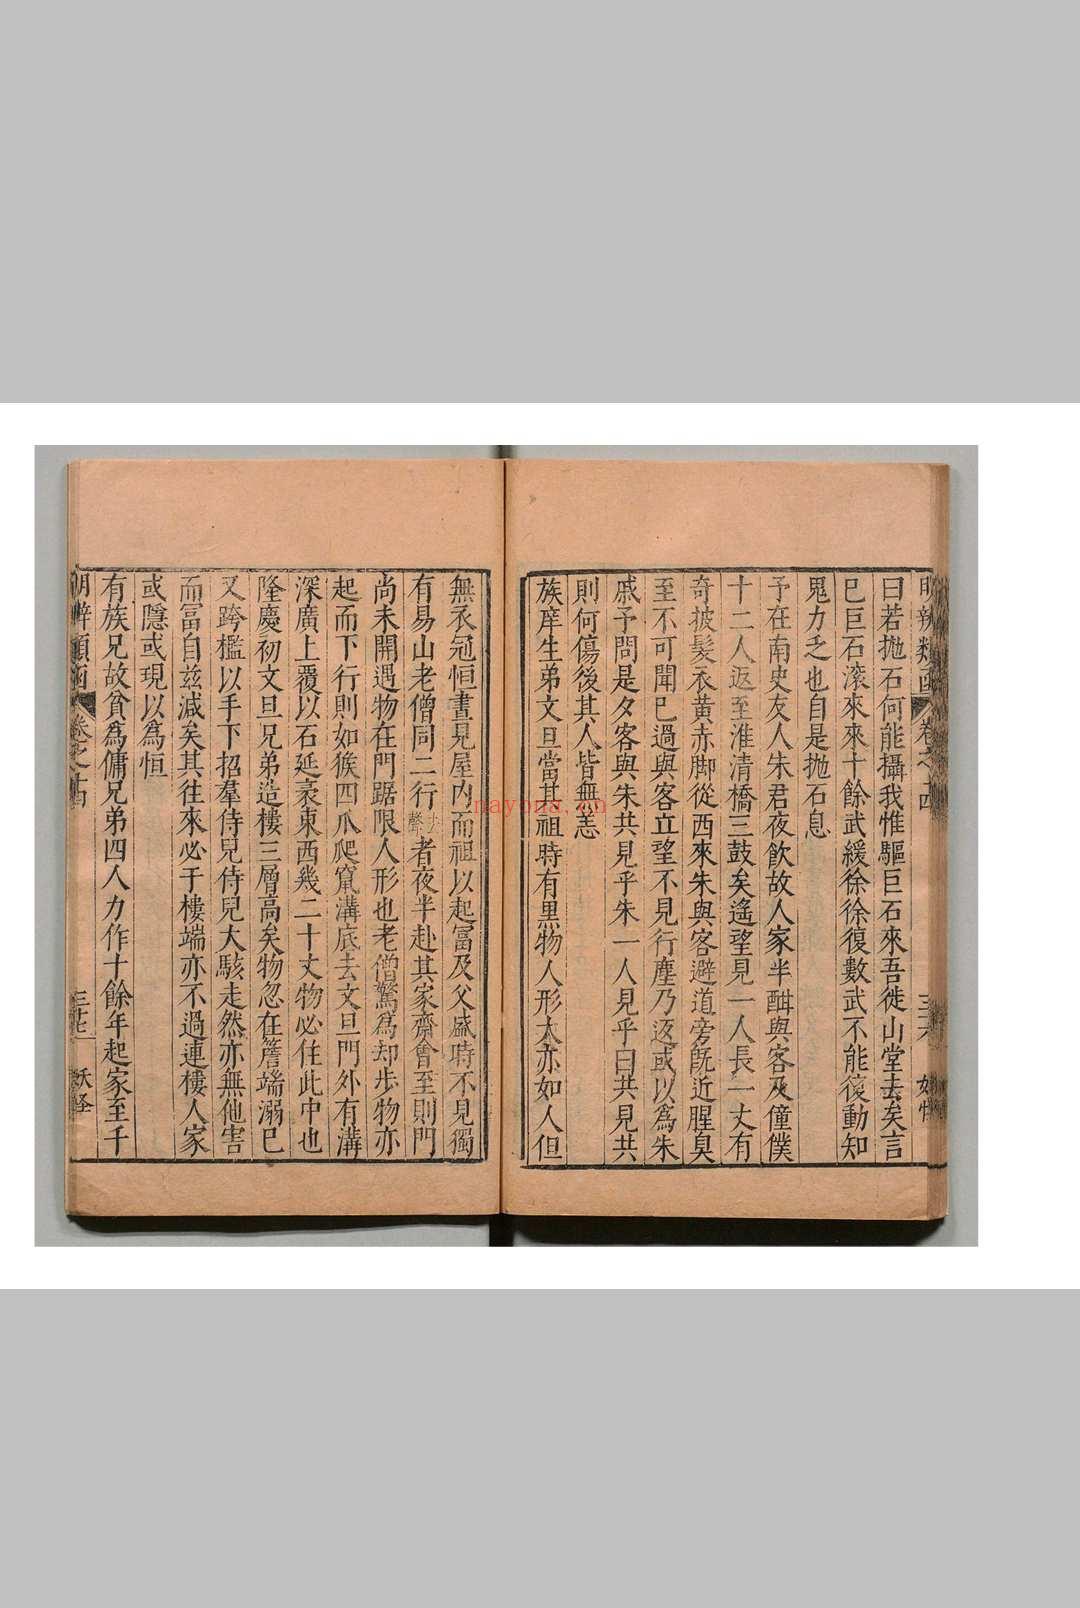 曰若拋石何能攝我惟驅巨石來吾徙山堂去矣言
已巨石滚來來十餘武緩徐徐復數武不能復動知
鬼力乏也自是拋石息
予在南史友人朱君夜飲故人家半酣與客及僮僕
十二人返至淮清橋三鼓矣遙望見一人長一丈有
奇披髮衣黄赤脚從西來朱與客避道旁旣近腥臭
至不可聞巳過與客立望不見行塵乃返或以爲朱
戚予問是夕客與朱共見乎朱一人見乎曰共見共
則何傷後其人皆無恙
族庠生弟文旦當其祖時有黑物人形大亦如人但
明辨類函 卷之十四 三十六
無衣冠恒晝見屋内而祖以起富及父盛時不見獨
有易山老僧同二行者夜半赴其家齋會至則門
尚未開遇物在門踞限人形也老僧驚爲却步物亦
起而下行則如猴四爪爬窟溝底去文旦門外有溝
深廣上覆以石延袤東西幾二十丈物必住此中也
隆慶初文旦兄弟造樓三層高矣物忽在簷端溺巳
又跨檻以手下招羣侍兒侍兒大駭走然亦無他害
而富自兹減矣其往來必于樓端亦不過連樓人家
或隱或現以為恒
有族兄故貧爲傭兄弟四人力作十餘年起家至千
明辨類函 卷之十四 三十七 妖怪
nayona.cn